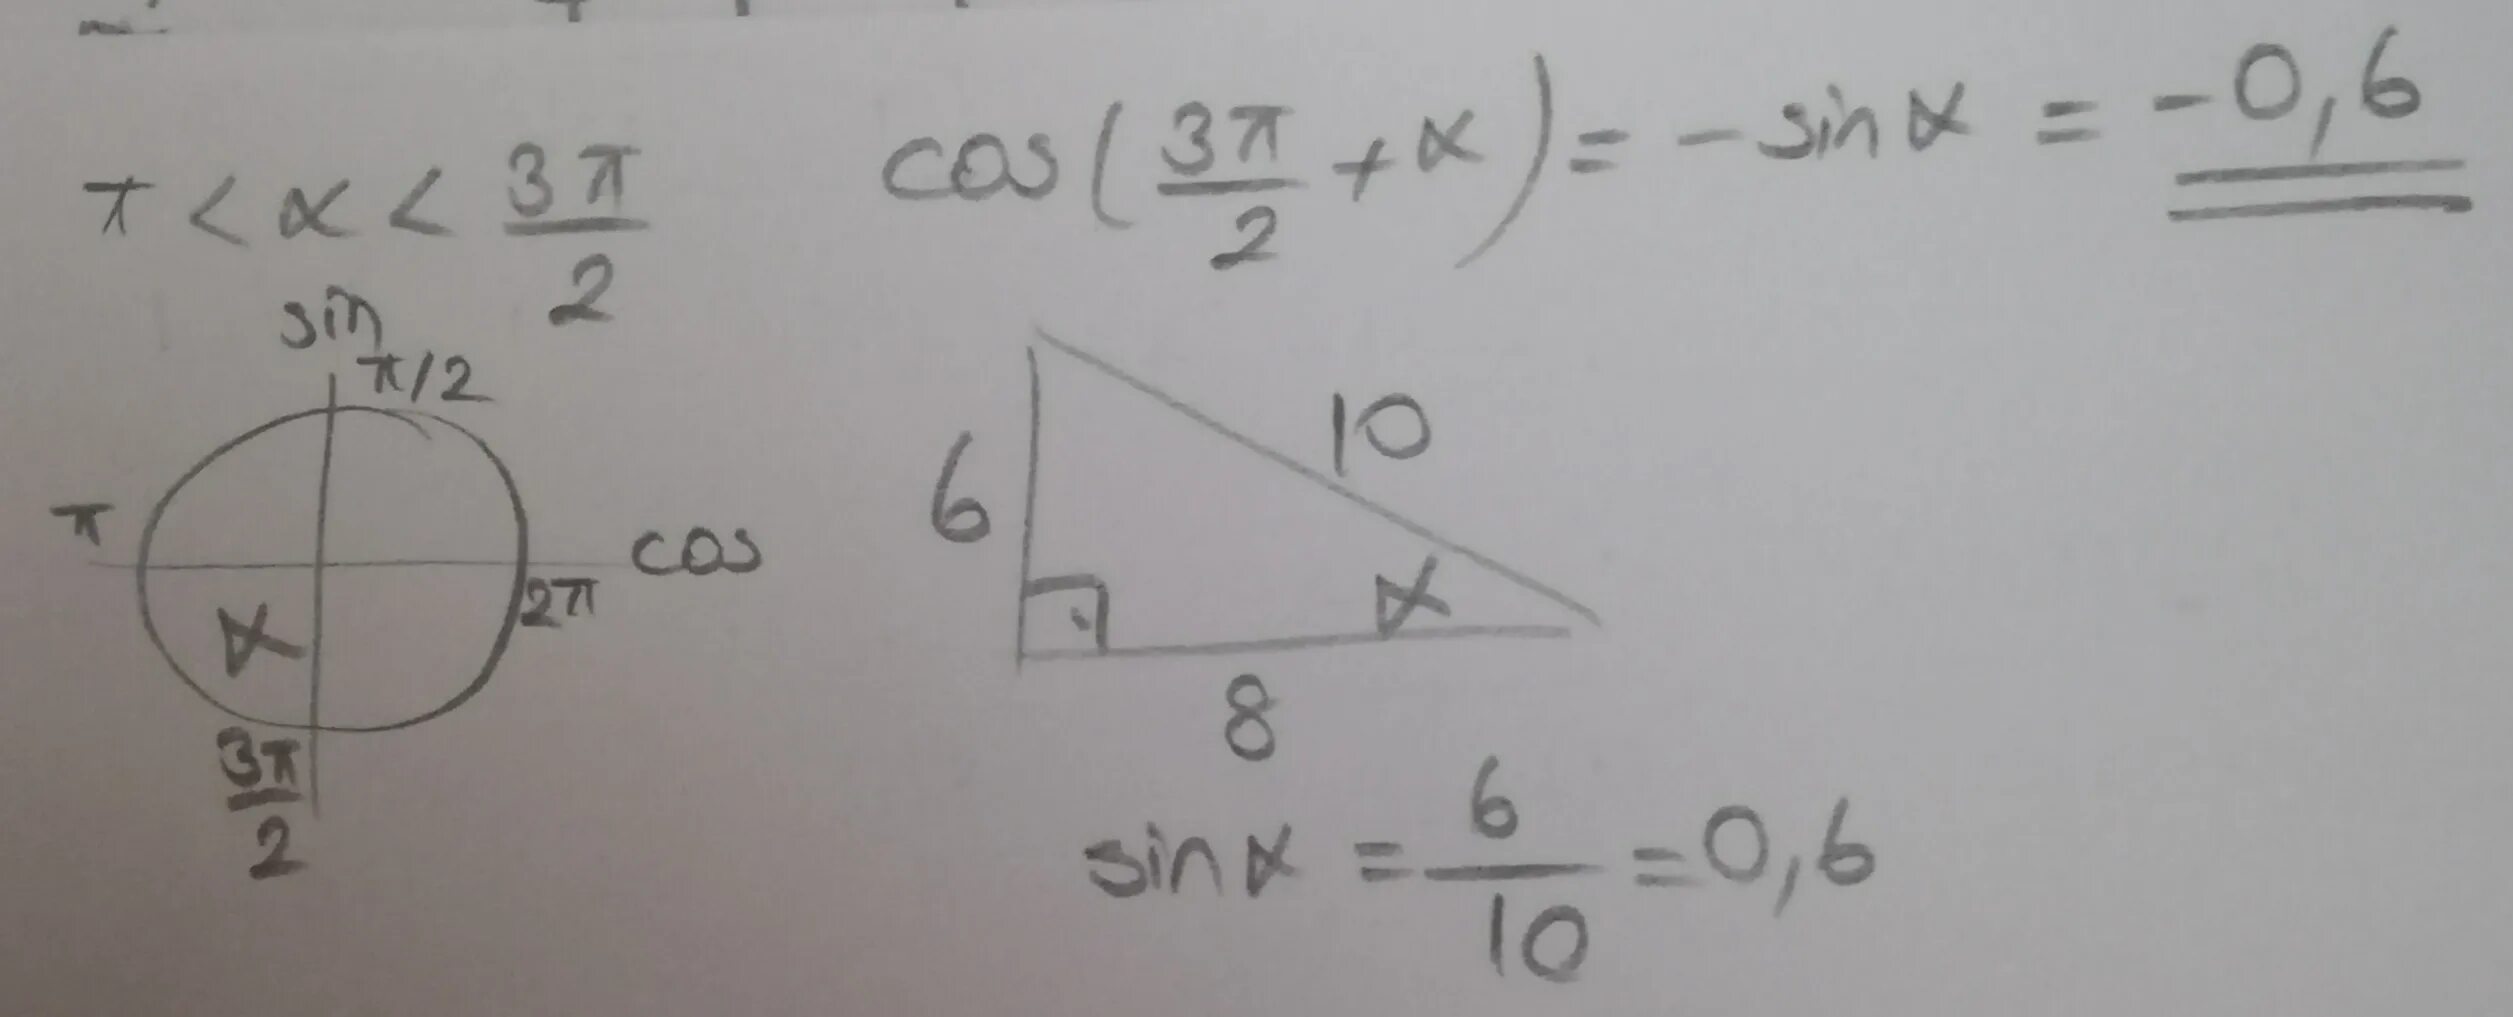 π < α < 3π/2
cos(3π/2 + α) = - sin α = -0,6
sin
π/2
π
cos
2π
α
3π/2
6
10
α
8
sin α = 6/10 = 0,6